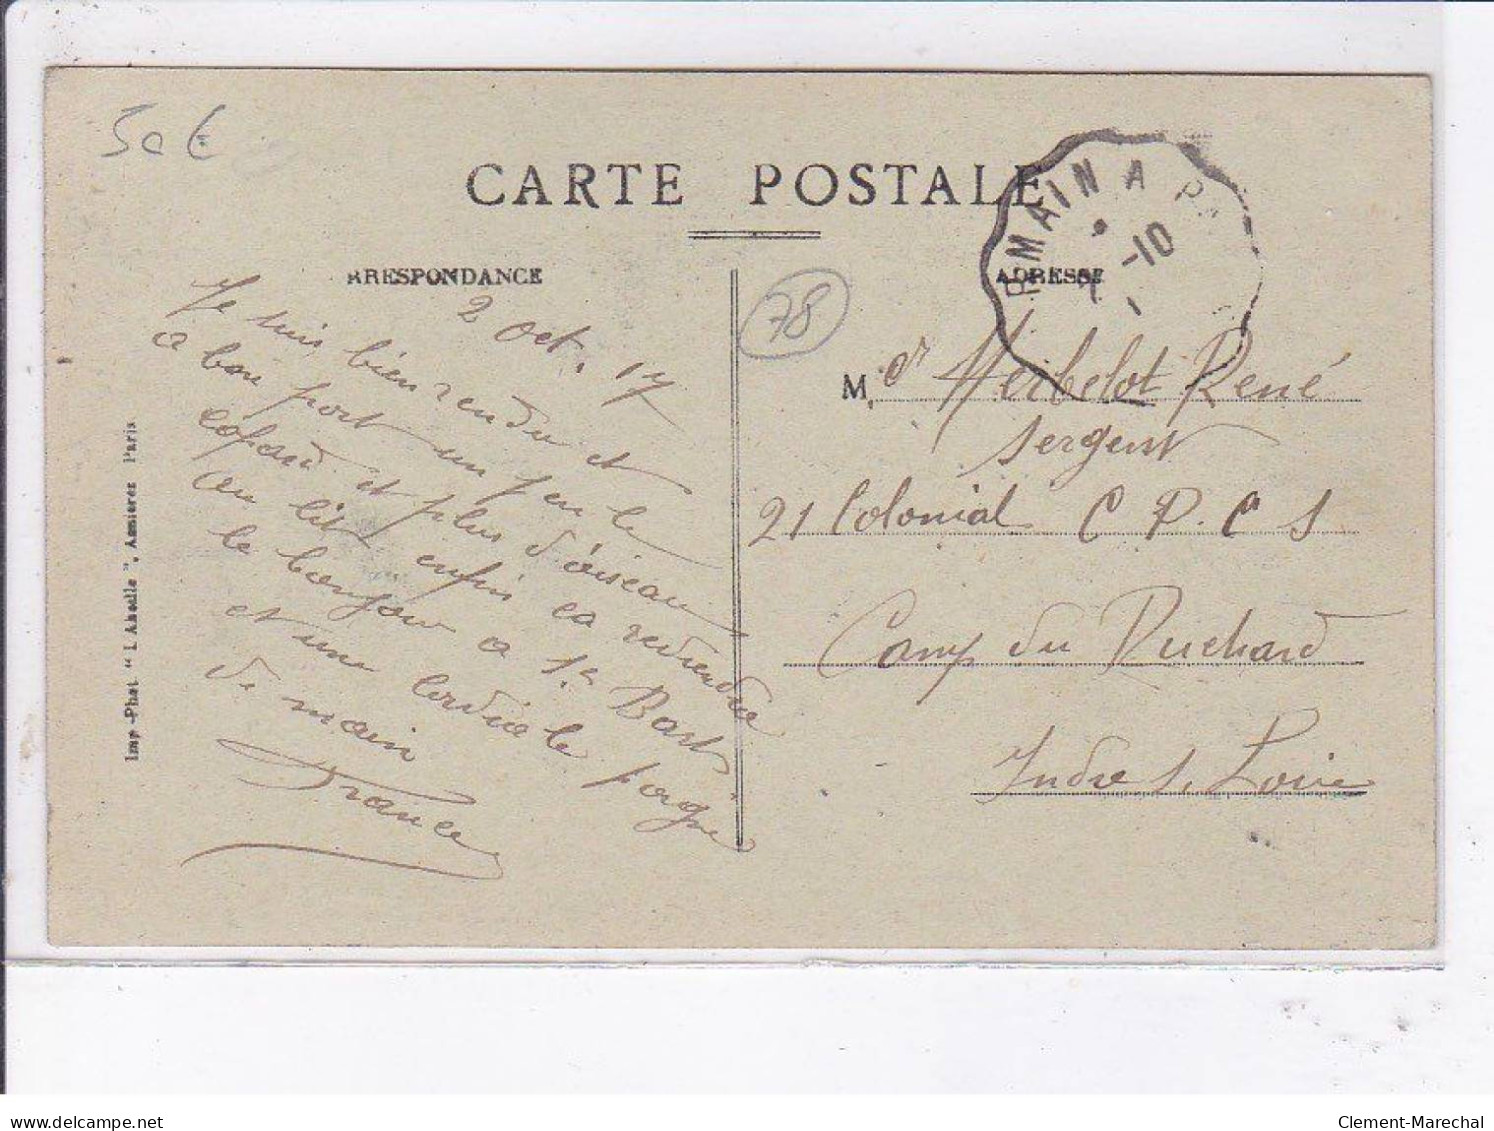 50 €
CARTE POSTALE
RMAIN A PA
-10
RRESPONDANCE
ADRESSE
78
2 Oct. 17
Je suis bien rendu et
a bon port un peu le
cafard et plus d'oiseau
au lit enfin ca reviendra
le bonjour a
et une cordiale
de main
France
M. er Herbelot René
Sergent
21 Colonial C P. C 1
Camp du Ruchard
Indre s. Loire
Imp.-Phot. "L'Abeille", Asnières Paris
delcampe.net
Clement-Marechal